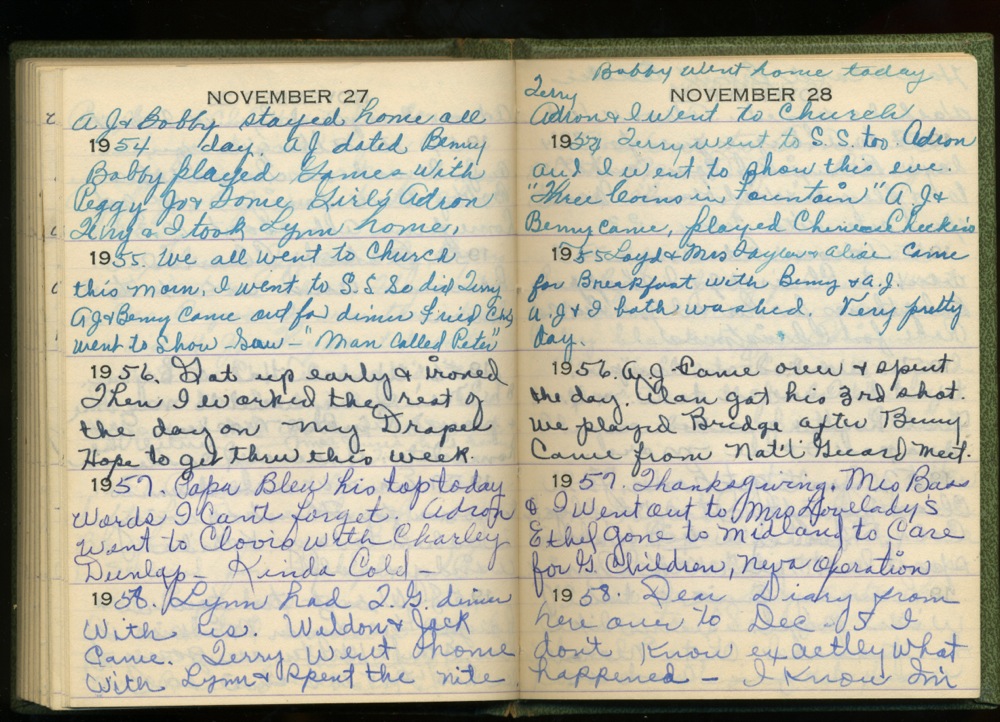 NOVEMBER 27
A J & Bobby stayed home all
1954 day. A J dated Benny
Bobby played Games with
Peggy Jo & Some Girls Adron
Terry & I took Lynn home,
1955. We all went to Church
this morn. I went to S.S So did Terry
A J & Benny Came out for dinner Fried
went to Show Saw - "Man Called Peter"
1956. Got up early & ironed
Then I worked the rest of
the day on my Drapes
Hope to get thru this week.
1957. Papa Blew his top today
Words I Can't forget. Adron
Went to Clovis with Charley
Dunlap - Kinda Cold -
1958. Lynn had T.G. dinner
With us. Weldon & Jack
Came. Terry Went home
With Lynn & Spent the nite
Bobby went home today
NOVEMBER 28
Terry
Adron & I Went to Church
1954 Terry went to S.S. too Adron
and I went to Show this eve.
"Three Coins in Fountain" A J &
Benny Came, played Chinese Checkers
1955 Loyd & Mrs Taylor & Alise Came
for Breakfast with Benny & A.J.
A.J. & I both washed. Very pretty
day.
1956. A J Came over & spent
the day. Alan got his 3rd shot.
We played Bridge after Benny
Came from Nat'l Guard Meet.
1957. Thanksgiving. Mrs Bass
& I Went out to Mrs Lovelady's
Ethel gone to Midland to Care
for G. Children, Neva Operation
1958. Dear Diary from
here over to Dec. 5 I
don't Know exactley What
happened - I Know I'm